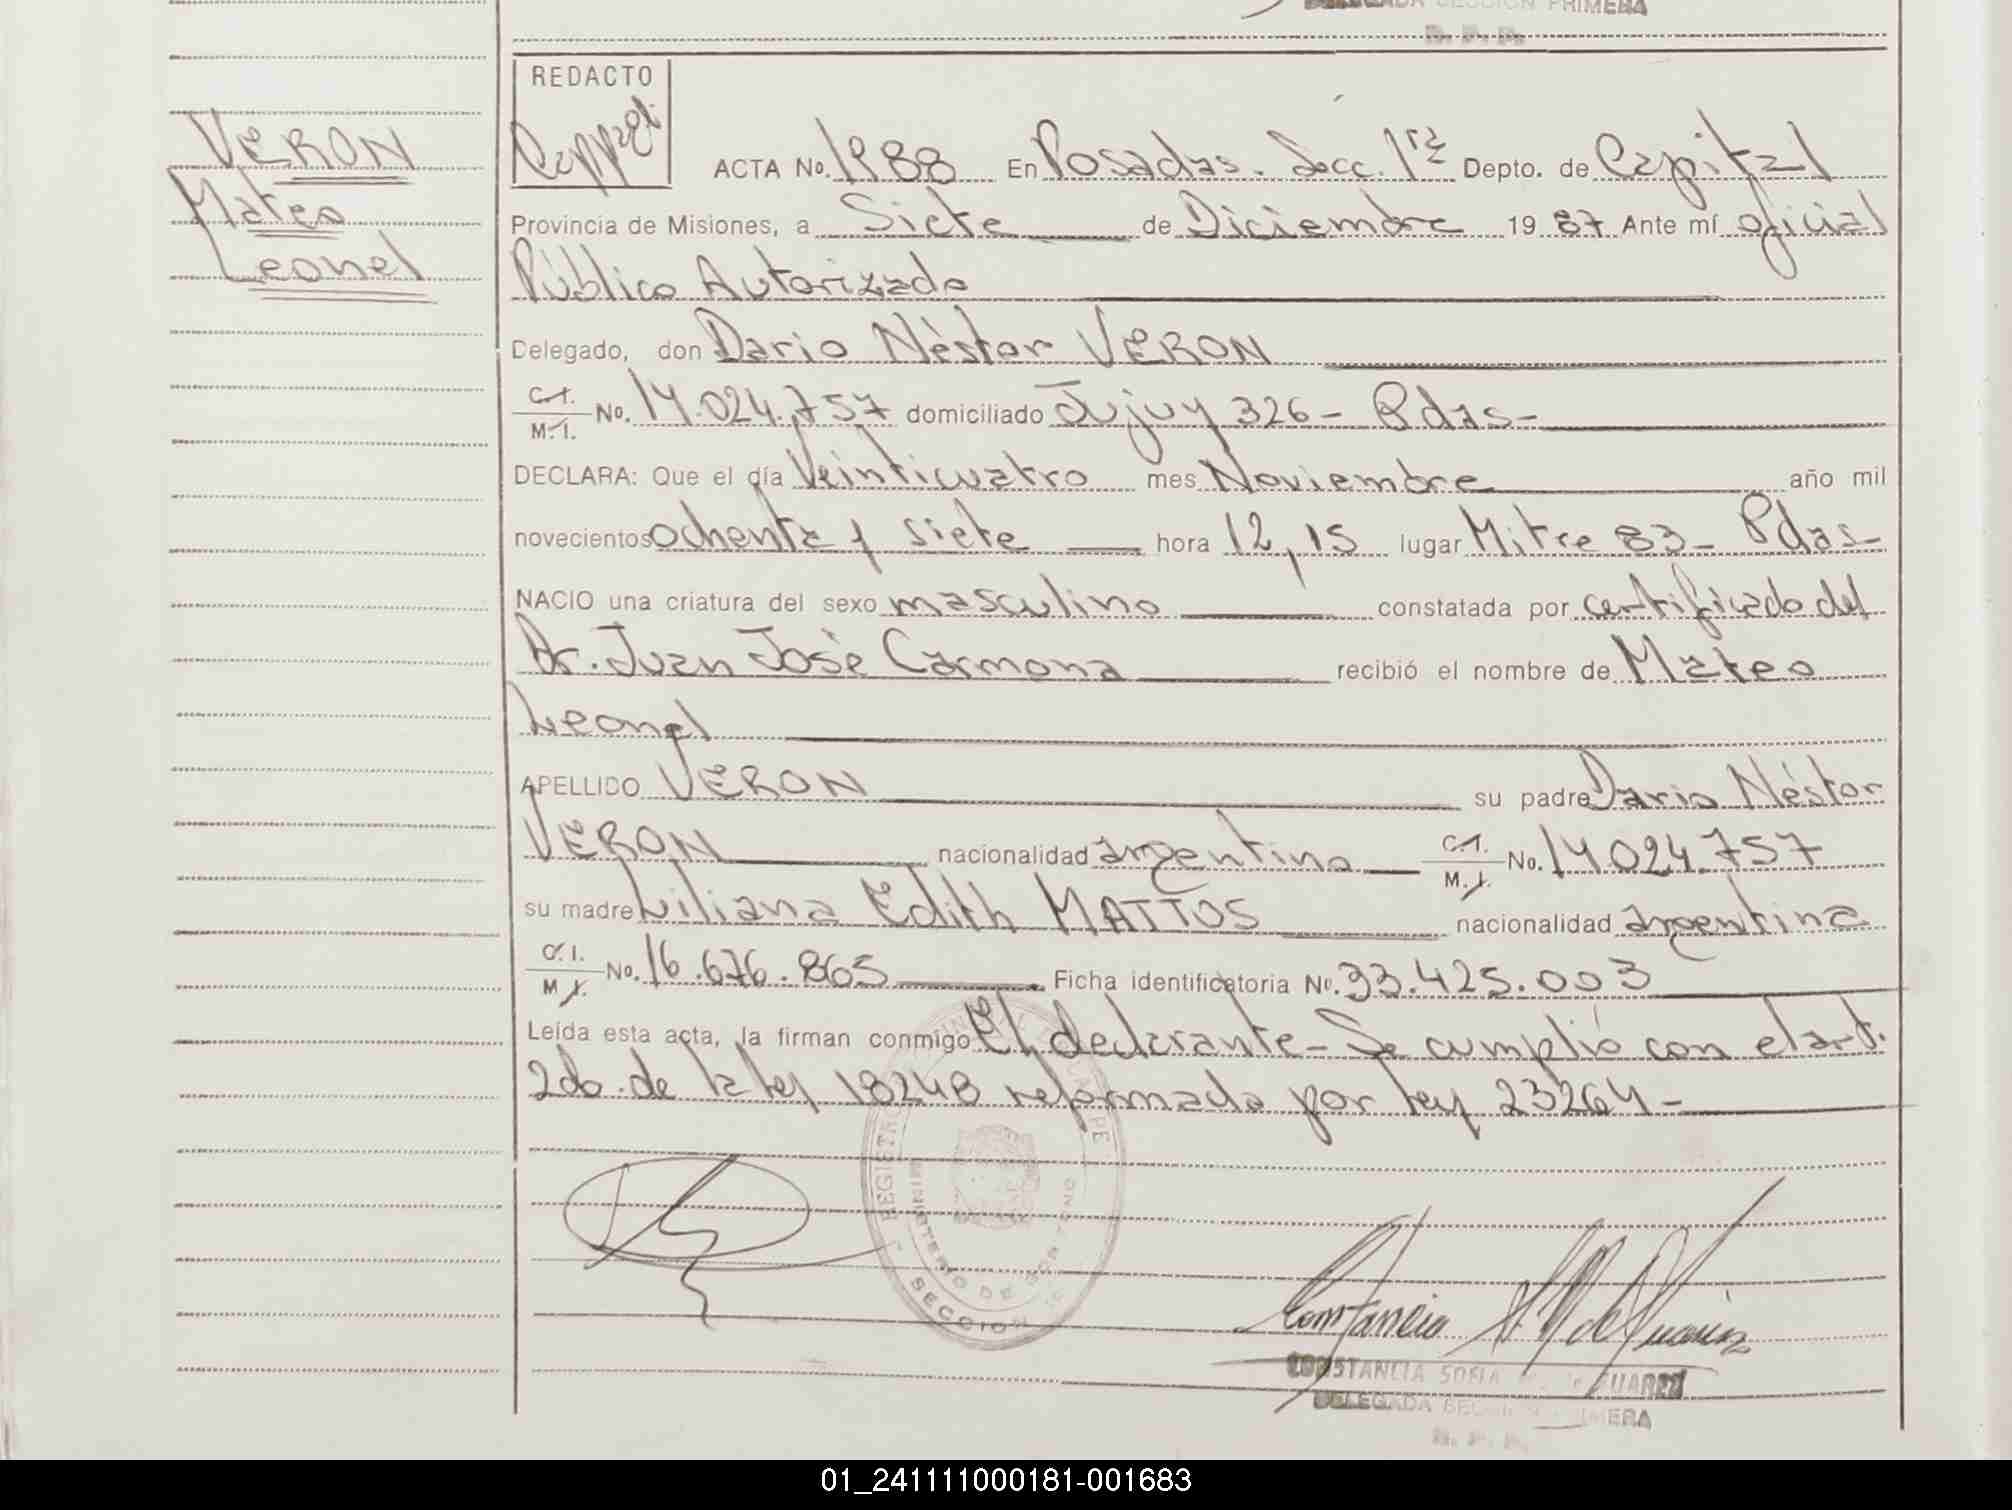 DELEGADA SECCION PRIMERA
R. P. P.
REDACTO
VERON
Mateo
Leonel
ACTA No. 1988 En Posadas. Secc. 1ra Depto. de Capital
Provincia de Misiones, a Siete de Diciembre 1987 Ante mí oficial
Público Autorizado
Delegado, don Dario Néstor VERON
C.I. M.I. No. 14.024.757 domiciliado Jujuy 326- Pdas-
DECLARA: Que el día Veinticuatro mes Noviembre año mil
novecientos ochenta y siete hora 12,15 lugar Mitre 83- Pdas-
NACIO una criatura del sexo masculino constatada por certificado del
Dr. Juan José Carmona recibió el nombre de Mateo
Leonel
APELLIDO VERON su padre Dario Néstor
VERON nacionalidad argentina C.I. M.I. No. 14.024.757
su madre Liliana Edith MATTOS nacionalidad argentina
C.I. M.I. No. 16.676.865 Ficha identificatoria No. 33.425.003
Leída esta acta, la firman conmigo El declarante- Se cumplió con el art.
2do. de la ley 18248 reformada por ley 23264-
MINISTERIO DE GOBIERNO
SECCION
Constancia
CONSTANCIA SOFIA SUAREZ
DELEGADA SECCION PRIMERA
R. P. P.
01_241111000181-001683